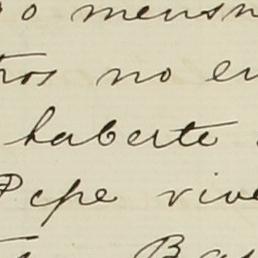 o mensn
tros no en
haberte
Pepe vive